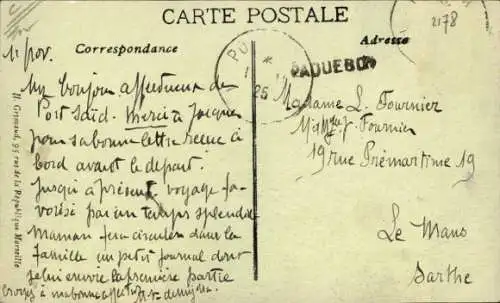 CARTE POSTALE
2178
Correspondance
Adresse
PAQUEBOT
1er nov.
Un bonjour affectueux de
Port Saïd. Merci à Jacques
pour sa bonne lettre reçue à
bord avant le départ.
Jusqu'à présent, voyage fa-
vorisé par un temps splendide
maman fera circuler dans la
famille un petit journal dont
je lui envoie la première partie
Croyez à ma bonne affection
Madame L. Fournier
Fournier
19 rue Prémartine 19
Le Mans
Sarthe
H. Grimaud, 95 rue de la République Marseille